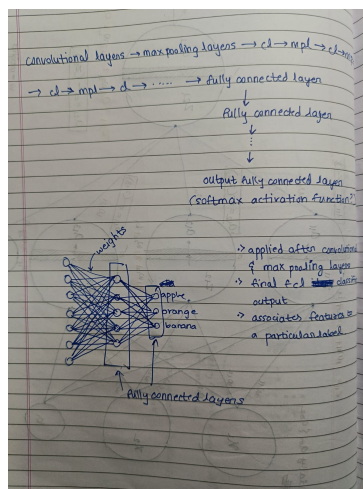 convolutional layers → max pooling layers → cl → mpl → cl →
→ cl → mpl → cl → ...... → fully connected layer
↓
fully connected layer
↓
⋮
↓
output fully connected layer
(softmax activation function?)
weights
apple
orange
banana
fully connected layers
·> applied after convolutional
& max pooling layers
·> final fcl
output
·> associates features
a particular label